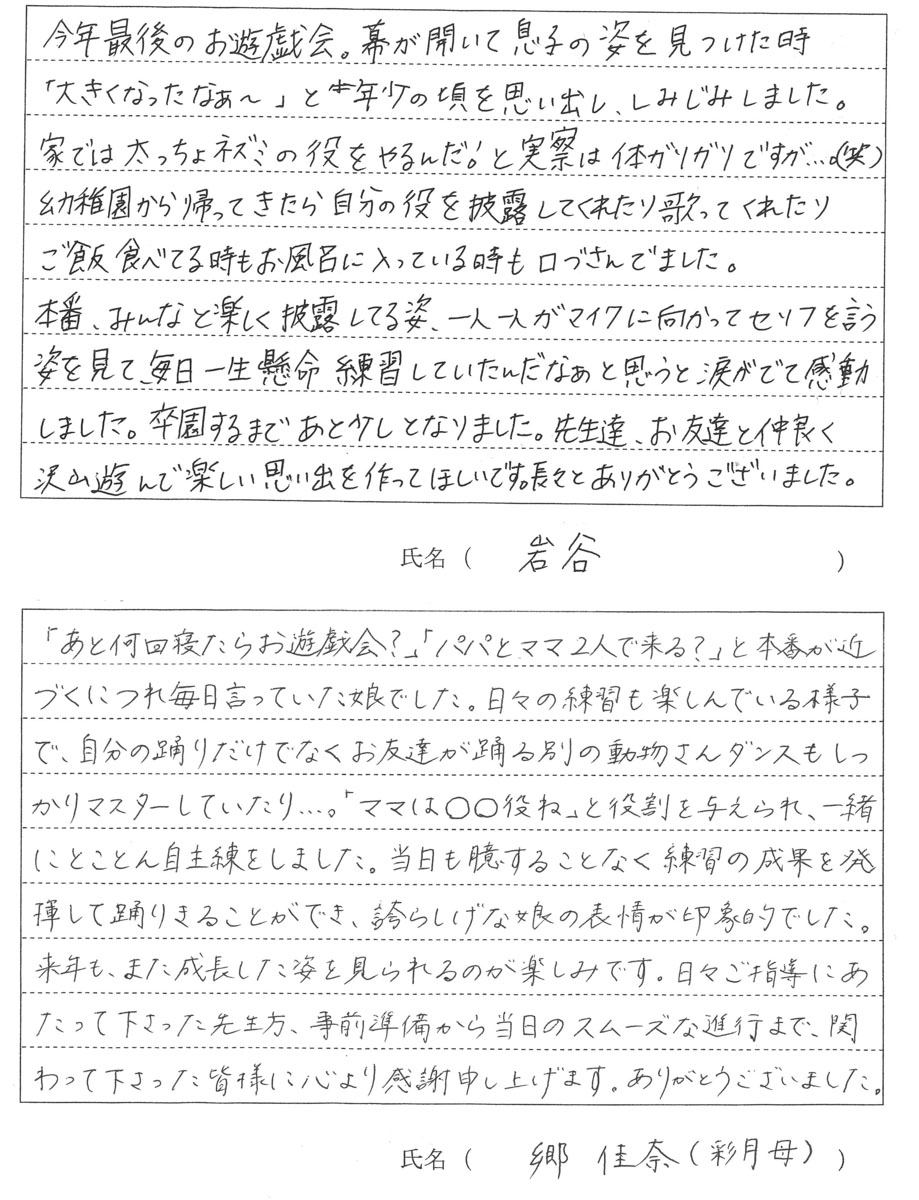 今年最後のお遊戯会。幕が開いて息子の姿を見つけた時
「大きくなったなぁ～」と年少の頃を思い出し、しみじみしました。
家では太っちょネズミの役をやるんだ!と実察は体がリガリですが…。(笑)
幼稚園から帰ってきたら自分の役を披露してくれたり歌ってくれたり
ご飯食べてる時もお風呂に入っている時も口づさんでました。
本番、みんなと楽しく披露してる姿、一人一人がマイクに向かってセリフを言う
姿を見て、毎日一生懸命練習していたんだなぁと思うと涙がでて感動
しました。卒園するまであと少しとなりました。先生達、お友達と仲良く
沢山遊んで楽しい思い出を作ってほしいです。長々とありがとうございました。
氏名（ 岩谷 ）
「あと何回寝たらお遊戯会?」「パパとママ2人で来る?」と本番が近
づくにつれ毎日言っていた娘でした。日々の練習も楽しんでいる様子
で、自分の踊りだけでなくお友達が踊る別の動物さんダンスもしっ
かりマスターしていたり…。「ママは〇〇役ね」と役割を与えられ、一緒
にとことん自主練をしました。当日も臆することなく練習の成果を発
揮して踊りきることができ、誇らしげな娘の表情が印象的でした。
来年も、また成長した姿を見られるのが楽しみです。日々ご指導にあ
たって下さった先生方、事前準備から当日のスムーズな進行まで、関
わって下さった皆様に心より感謝申し上げます。ありがとうございました。
氏名（ 郷 佳奈(彩月母) ）